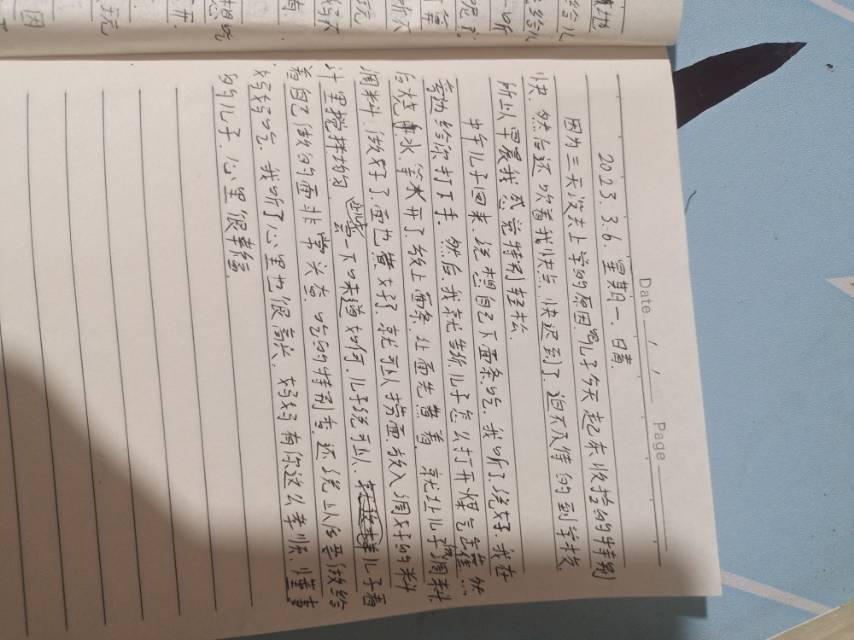 Date / / Page
2023. 3.6. 星期一. 日青.
因为三天没去上学的原因. 儿子今天起来收拾的特别
快. 然后还吹着我快点. 快迟到了. 迫不及待的到学校.
所以早晨我感觉特别轻松.
中午儿子回来. 说想自己下面条吃. 我听了说好. 我在
旁边给你打下手. 然后我就告诉儿子怎么打开煤气 然
后烧水. 等水开了放上面条. 让面先煮着. 就让儿子调料.
调料做好了. 面也煮好了. 就可以捞面. 放入调好的料
汁里搅拌均匀. 尝一下味道如何. 儿子说可以. 儿子看
着自己做的面非常兴奋. 吃的特别香. 还说以后要做给
妈妈吃. 我听了心里也很高兴. 妈妈有你这么孝顺. 懂事
的儿子. 心里很幸福.